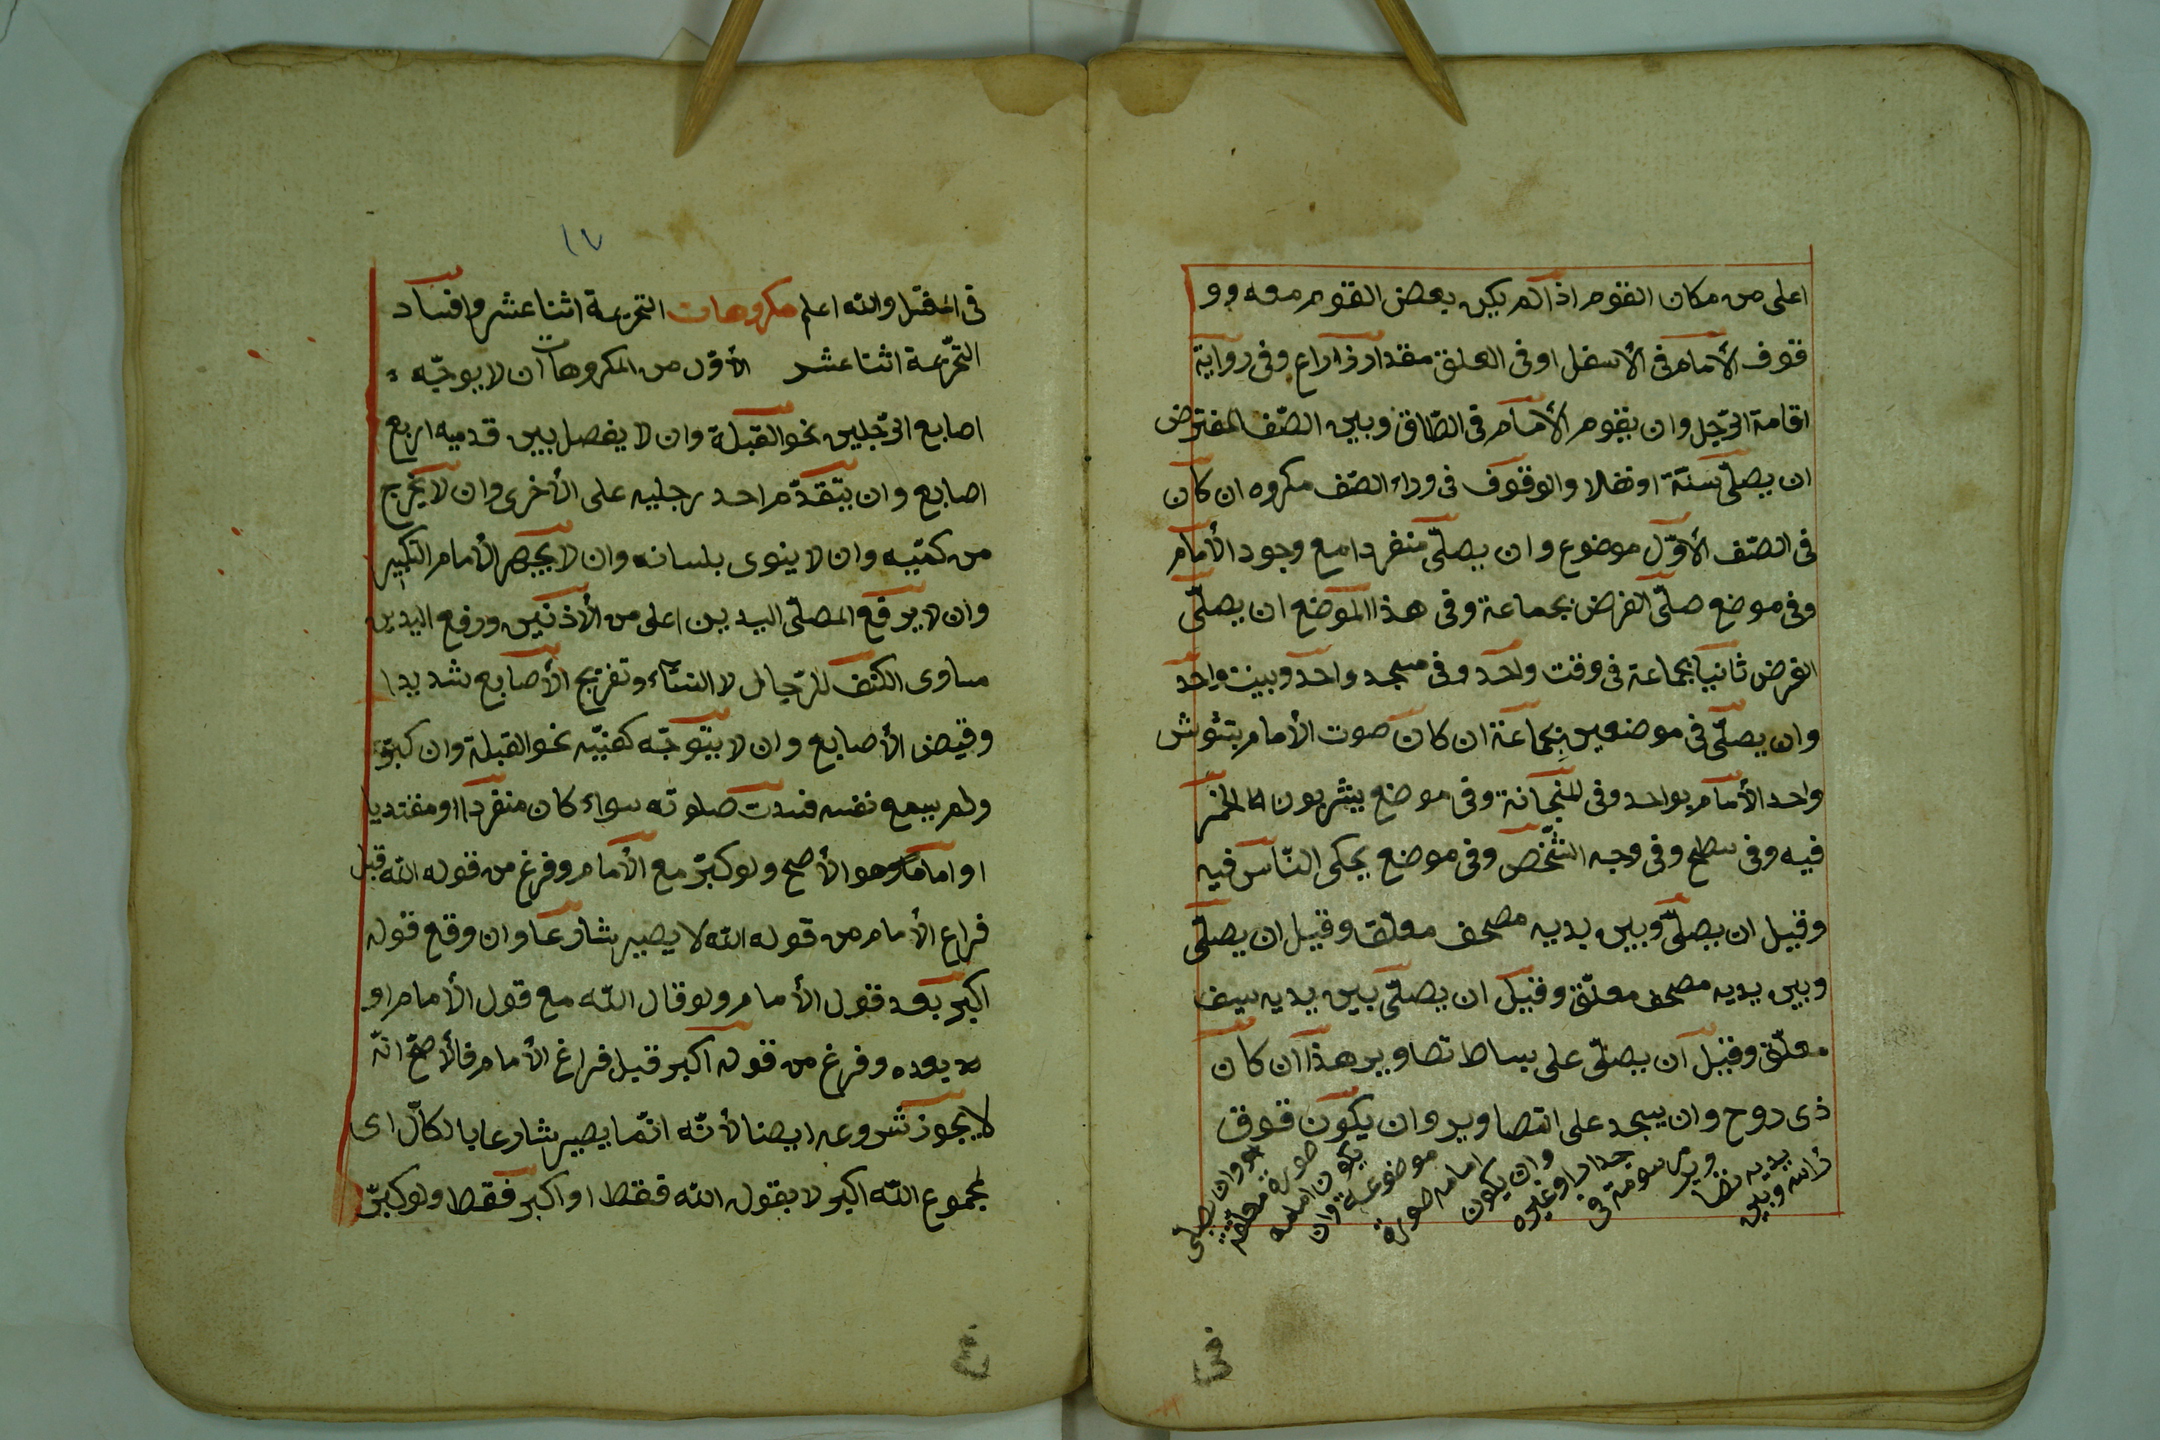 اعلى من مكان القوم اذا لم يكن بعض القوم معه وو
قوف الأمام فى الأسفل او فى العلق مقدار ذاراع وفى رواية
اقامة الرّجل وان يقوم الأمام فى الطّاق وبين الصّف المفترض
ان يصلّى سنّة او نفلا والوقوف فى وراء الصّف مكروه ان كان
فى الصّف الأوّل موضوع وان يصلّى منفردا مع وجود الأمام
وفى موضع صلّى الفرض بجماعة وفى هذا الموضع ان يصلّى
الفرض ثانيا بجماعة فى وقت واحد وفى مسجد واحد وبيت واحد
وان يصلّى فى موضعين بجماعة ان كان صوت الأمام يتئوش
واحد الأمام بواحد وفى للنجانة وفى موضع يشربون الخمر
فيه وفى سطح وفى وجه الشّخص وفى موضع يحكى النّاس فيه
وقيل ان يصلّى وبين يديه مصحف معلّق وقيل ان يصلّى
وبين يديه مصحف معلّق وقيل ان يصلّى بين يديه سيف
معلّق وقيل ان يصلّى على بساط تصاوير هذا ان كان
ذى روح وان يسجد على التصاوير وان يكون فوق
رأسه وبين يديه تصاوير مرسومة فى جدار او غيره وان يكون امامه صورة موضوعة وان يكون امامه صورة معلّقة وان يصلى
فى
١٧
فى المقتل والله اعلم مكروهات التحريمة اثنا عشر وافساد
التحريمة اثنا عشر الأوّل من المكروهات ان لا يوجّه
اصابع الرّجلين نحو القبلة وان لا يفصل بين قدميه اربع
اصابع وان يتقدّم احد رجليه على الأخرى وان لا يخرج
من كمّيه وان لا ينوى بلسانه وان لا يجهر الأمام التكبير
وان لا يرفع المصلّى اليدين اعلى من الأذنين ورفع اليدين
مساوى الكتف للرّجال لا النسّاء وتفريج الأصابع شديدا
وقيض الأصابع وان لا يتوجّه كفيّه نحو القبلة وان كبّر
ولم يسمع نفسه فسدت صلوته سواء كان منفردا او مقتديا
او اماما وهو الأصح ولو كبّر مع الأمام وفرغ من قوله الله قبل
فراغ الأمام من قوله الله لا يصير شارعا وان وقع قوله
اكبر بعد قول الأمام ولو قال الله مع قول الأمام او
بعده وفرغ من قوله اكبر قبل فراغ الأمام فالأصحّ انّه
لا يجوز شروعه ايضا لأنّه انّما يصير شارعا بالكلّ اى
بمجموع الله اكبر لا بقول الله فقط او اكبر فقط ولو كبّر
غ